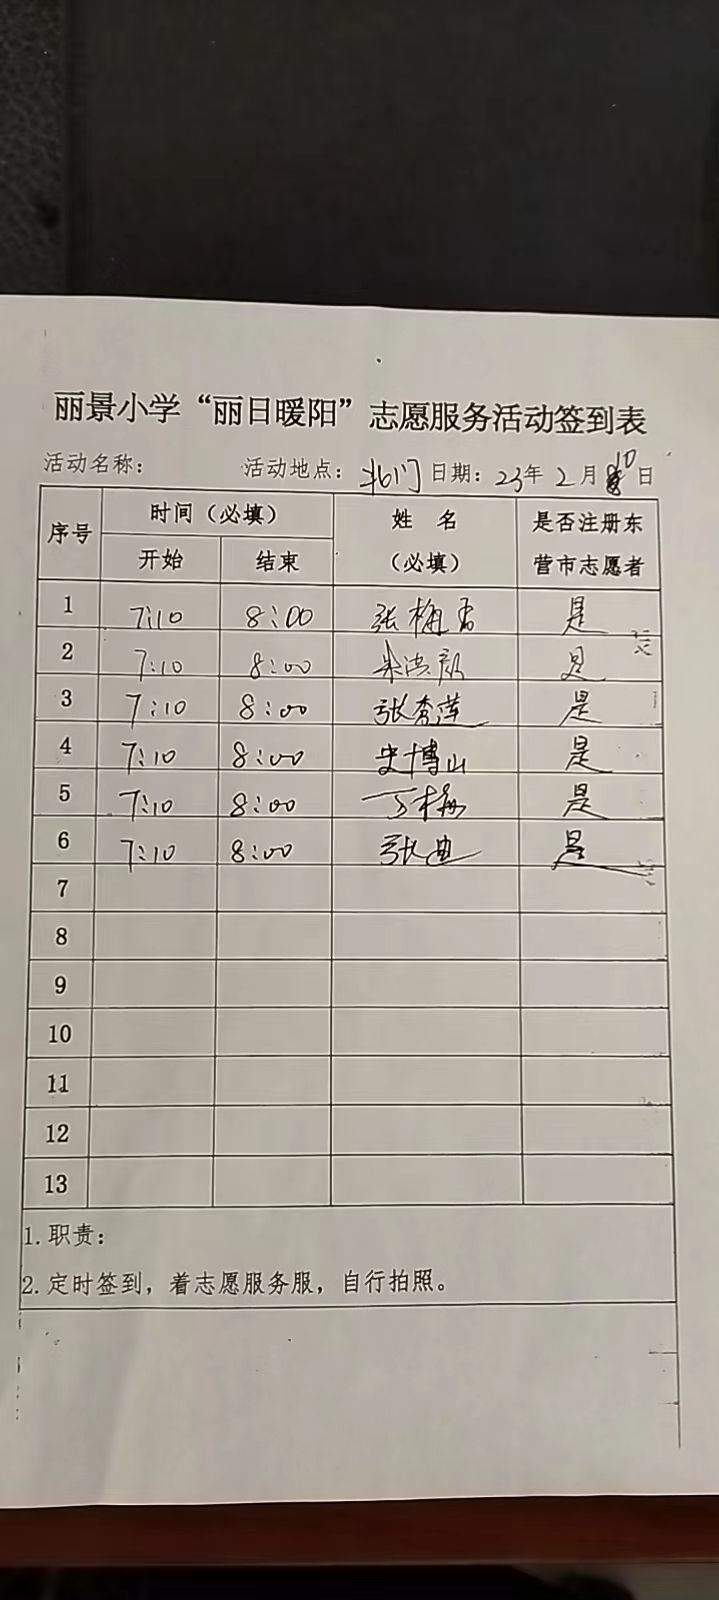 丽景小学“丽日暖阳”志愿服务活动签到表
活动名称： 活动地点：北门 日期：23年2月10日
序号 时间（必填） 姓名（必填） 是否注册东营市志愿者
开始 结束
1 7:10 8:00 张梅香 是
2 7:10 8:00 是
3 7:10 8:00 张秀莲 是
4 7:10 8:00 史博山 是
5 7:10 8:00 丁梅 是
6 7:10 8:00 张迪 是
7
8
9
10
11
12
13
1.职责：
2.定时签到，着志愿服务服，自行拍照。